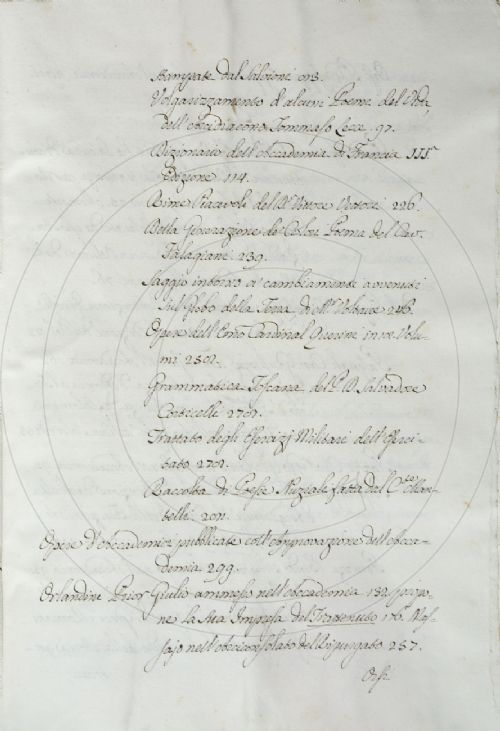 stampate dal Salvioni
Volgarizzamento d'alcune Poeme del Vida,
dell'Arcidiacono Tommaso 97.
Dizionario dell'Accademia di Francia III.ª
Edizione 114.
Rime Piacevoli del D.r Vittore Vettori 226.
Della Generazione de' Poema del Cav.r
239.
Saggio intorno a' cambiamenti avvenuti
sul Globo della Terra di M.r Voltaire 246.
Opere dell'Em.o Cardinal Querini in Volu-
mi
Grammatica Toscana del P. D. Salvadore
Corticelli
Trattato degli Esercizj Militari dell'Eserci-
tato
Raccolta di Poesie Nuziale fatta dal C.te Man-
telli
Opere d'Accademici pubblicate coll'Approvazione dell'Acca-
demia 299.
Orlandini Prior Giulio ammesso nell'Accademia 132. propo-
ne la sua Impresa del Trattenuto 176. Mas-
sajo nell'Arciconsolato del Ripurgato 257.